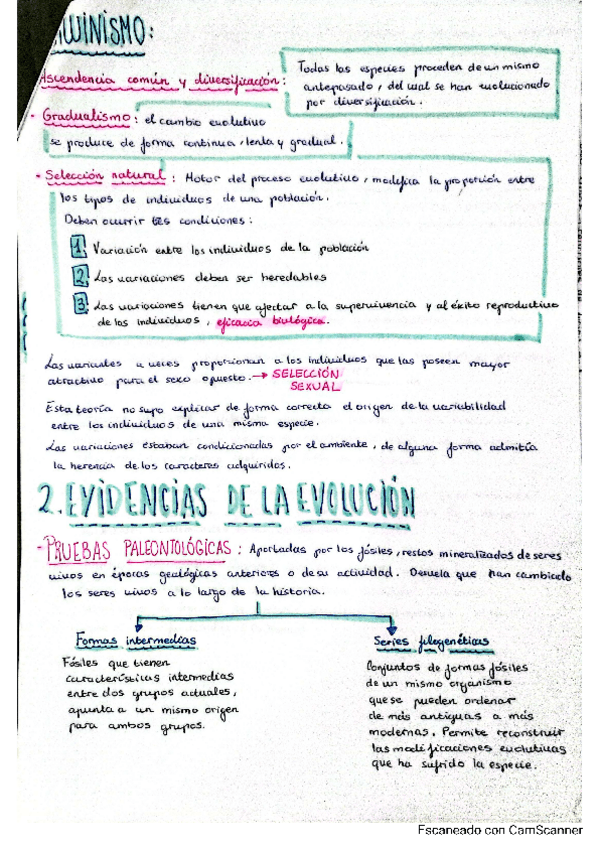 WINISMO:
Ascendencia común y diversificación:
Todas las especies proceden de un mismo
antepasado, del cual se han evolucionado
por diversificación.
- Gradualismo: el cambio evolutivo
se produce de forma continua, lenta y gradual.
- Selección natural: Motor del proceso evolutivo, modifica la proporción entre
los tipos de individuos de una población.
Deben ocurrir tres condiciones:
1. Variación entre los individuos de la población
2. Las variaciones deben ser heredables
3. Las variaciones tienen que afectar a la supervivencia y al éxito reproductivo
de los individuos, eficacia biológica.
Las variantes a veces proporcionan a los individuos que las poseen mayor
atractivo para el sexo opuesto. → SELECCIÓN
SEXUAL
Esta teoría no supo explicar de forma correcta el origen de la variabilidad
entre los individuos de una misma especie.
Las variaciones estaban condicionadas por el ambiente, de alguna forma admitía
la herencia de los caracteres adquiridos.
2. EVIDENCIAS DE LA EVOLUCIÓN
- PRUEBAS PALEONTOLÓGICAS: Aportadas por los fósiles, restos mineralizados de seres
vivos en épocas geológicas anteriores o de su actividad. Desvela que han cambiado
los seres vivos a lo largo de la historia.
Formas intermedias
Fósiles que tienen
características intermedias
entre dos grupos actuales,
apunta a un mismo origen
para ambos grupos.
Series filogenéticas
Conjuntos de formas fósiles
de un mismo organismo
que se pueden ordenar
de más antiguas a más
modernas. Permite reconstruir
las modificaciones evolutivas
que ha sufrido la especie.
Escaneado con CamScanner